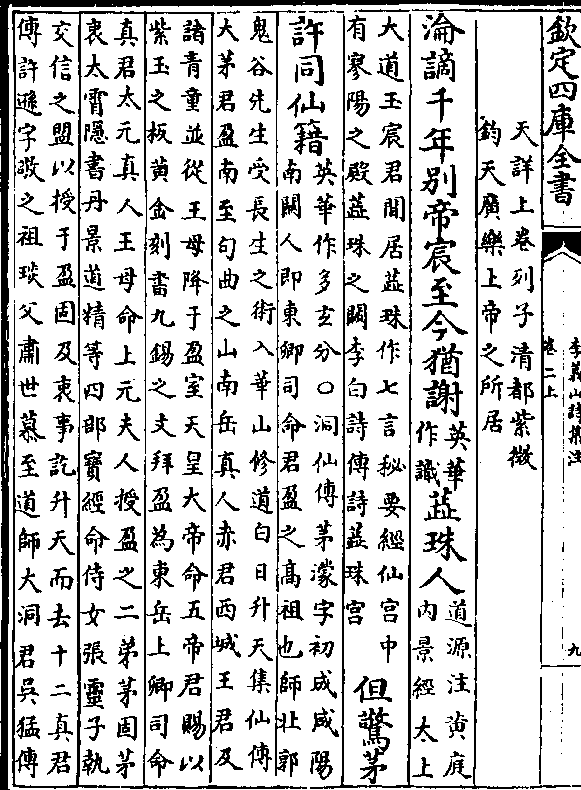 欽定四庫全書
李義山詩集注
卷二上
九
天詳上卷列子清都紫微
鈞天廣樂上帝之所居
淪謫千年别帝宸至今猶謝英華作識蕊珠人道源注黄庭内景經太上
大道玉宸君閒居蕊珠作七言秘要經仙宫中
有寥陽之殿蕊珠之闕李白詩傳詩蕊珠宫
但驚茅
許同仙籍英華作多玄分○洞仙傳茅濛字初成咸陽
南關人即東卿司命君盈之高祖也師北郭
鬼谷先生受長生之術入華山修道白日升天集仙傳
大茅君盈南至句曲之山南岳真人赤君西城王君及
諸青童並從王母降于盈室天皇大帝命五帝君賜以
紫玉之板黄金刻書九錫之文拜盈為東岳上卿司命
真君太元真人王母命上元夫人授盈之二弟茅固茅
衷太霄隠書丹景道精等四部寶經命侍女張靈子執
交信之盟以授于盈固及衷事訖升天而去十二真君
傳許遜字敬之祖琰父肅世慕至道師大洞君吳猛傳